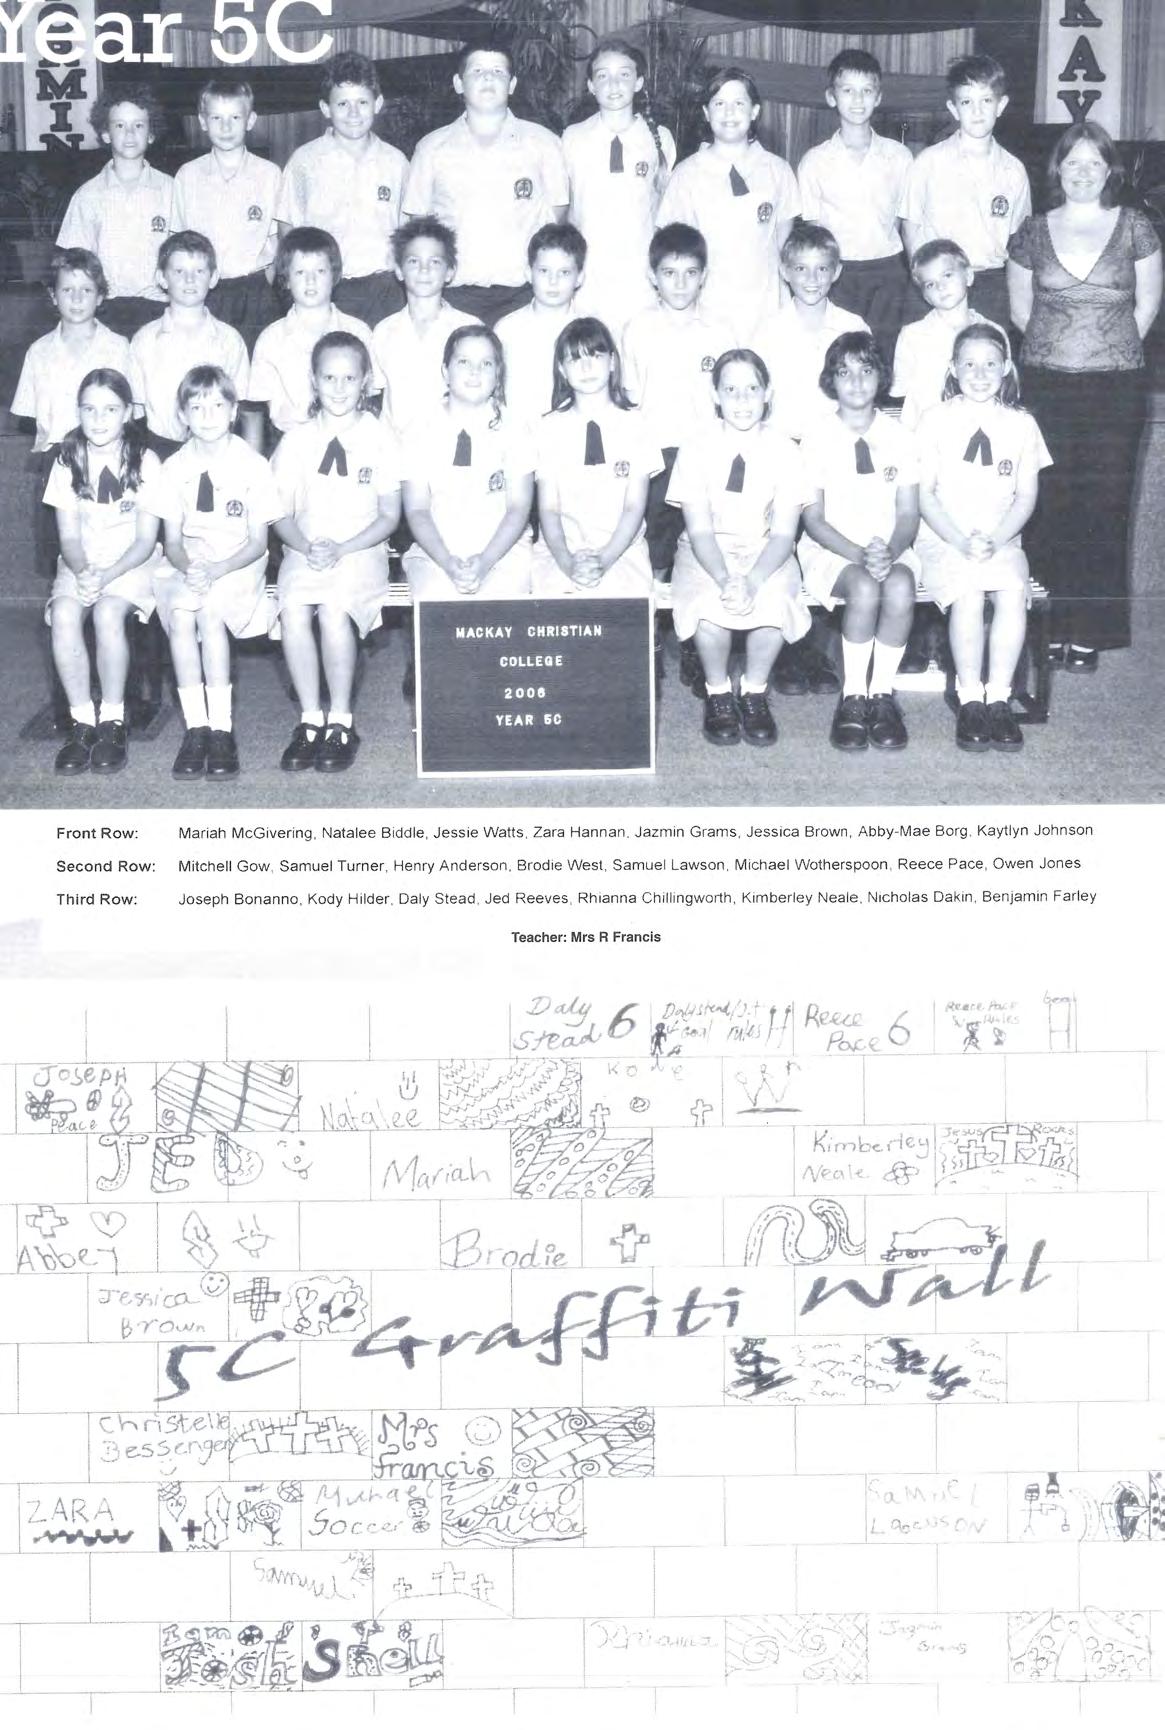 Year 5C
OMIN
KAY
MACKAY CHRISTIAN
COLLEGE
2006
YEAR 5C
Front Row: Mariah McGivering, Natalee Biddle, Jessie Watts, Zara Hannan, Jazmin Grams, Jessica Brown, Abby-Mae Borg, Kaytlyn Johnson
Second Row: Mitchell Gow, Samuel Turner, Henry Anderson, Brodie West, Samuel Lawson, Michael Wotherspoon, Reece Pace, Owen Jones
Third Row: Joseph Bonanno, Kody Hilder, Daly Stead, Jed Reeves, Rhianna Chillingworth, Kimberley Neale, Nicholas Dakin, Benjamin Farley
Teacher: Mrs R Francis
Daly Stead 6
Goal rules
Reece Pace 6
Reece Pace Rules
JOSEPH
Peace
Natalee
JED
Mariah
Kimberley Neale
JESUS Rocks
Abbey
Brodie
Jessica Brown
5C Graffiti Wall
Christelle Bessenger
Mrs Francis
ZARA
Michael Soccer
SaMUEL
Samuel
I am Josh Snell
Jazmin Grams